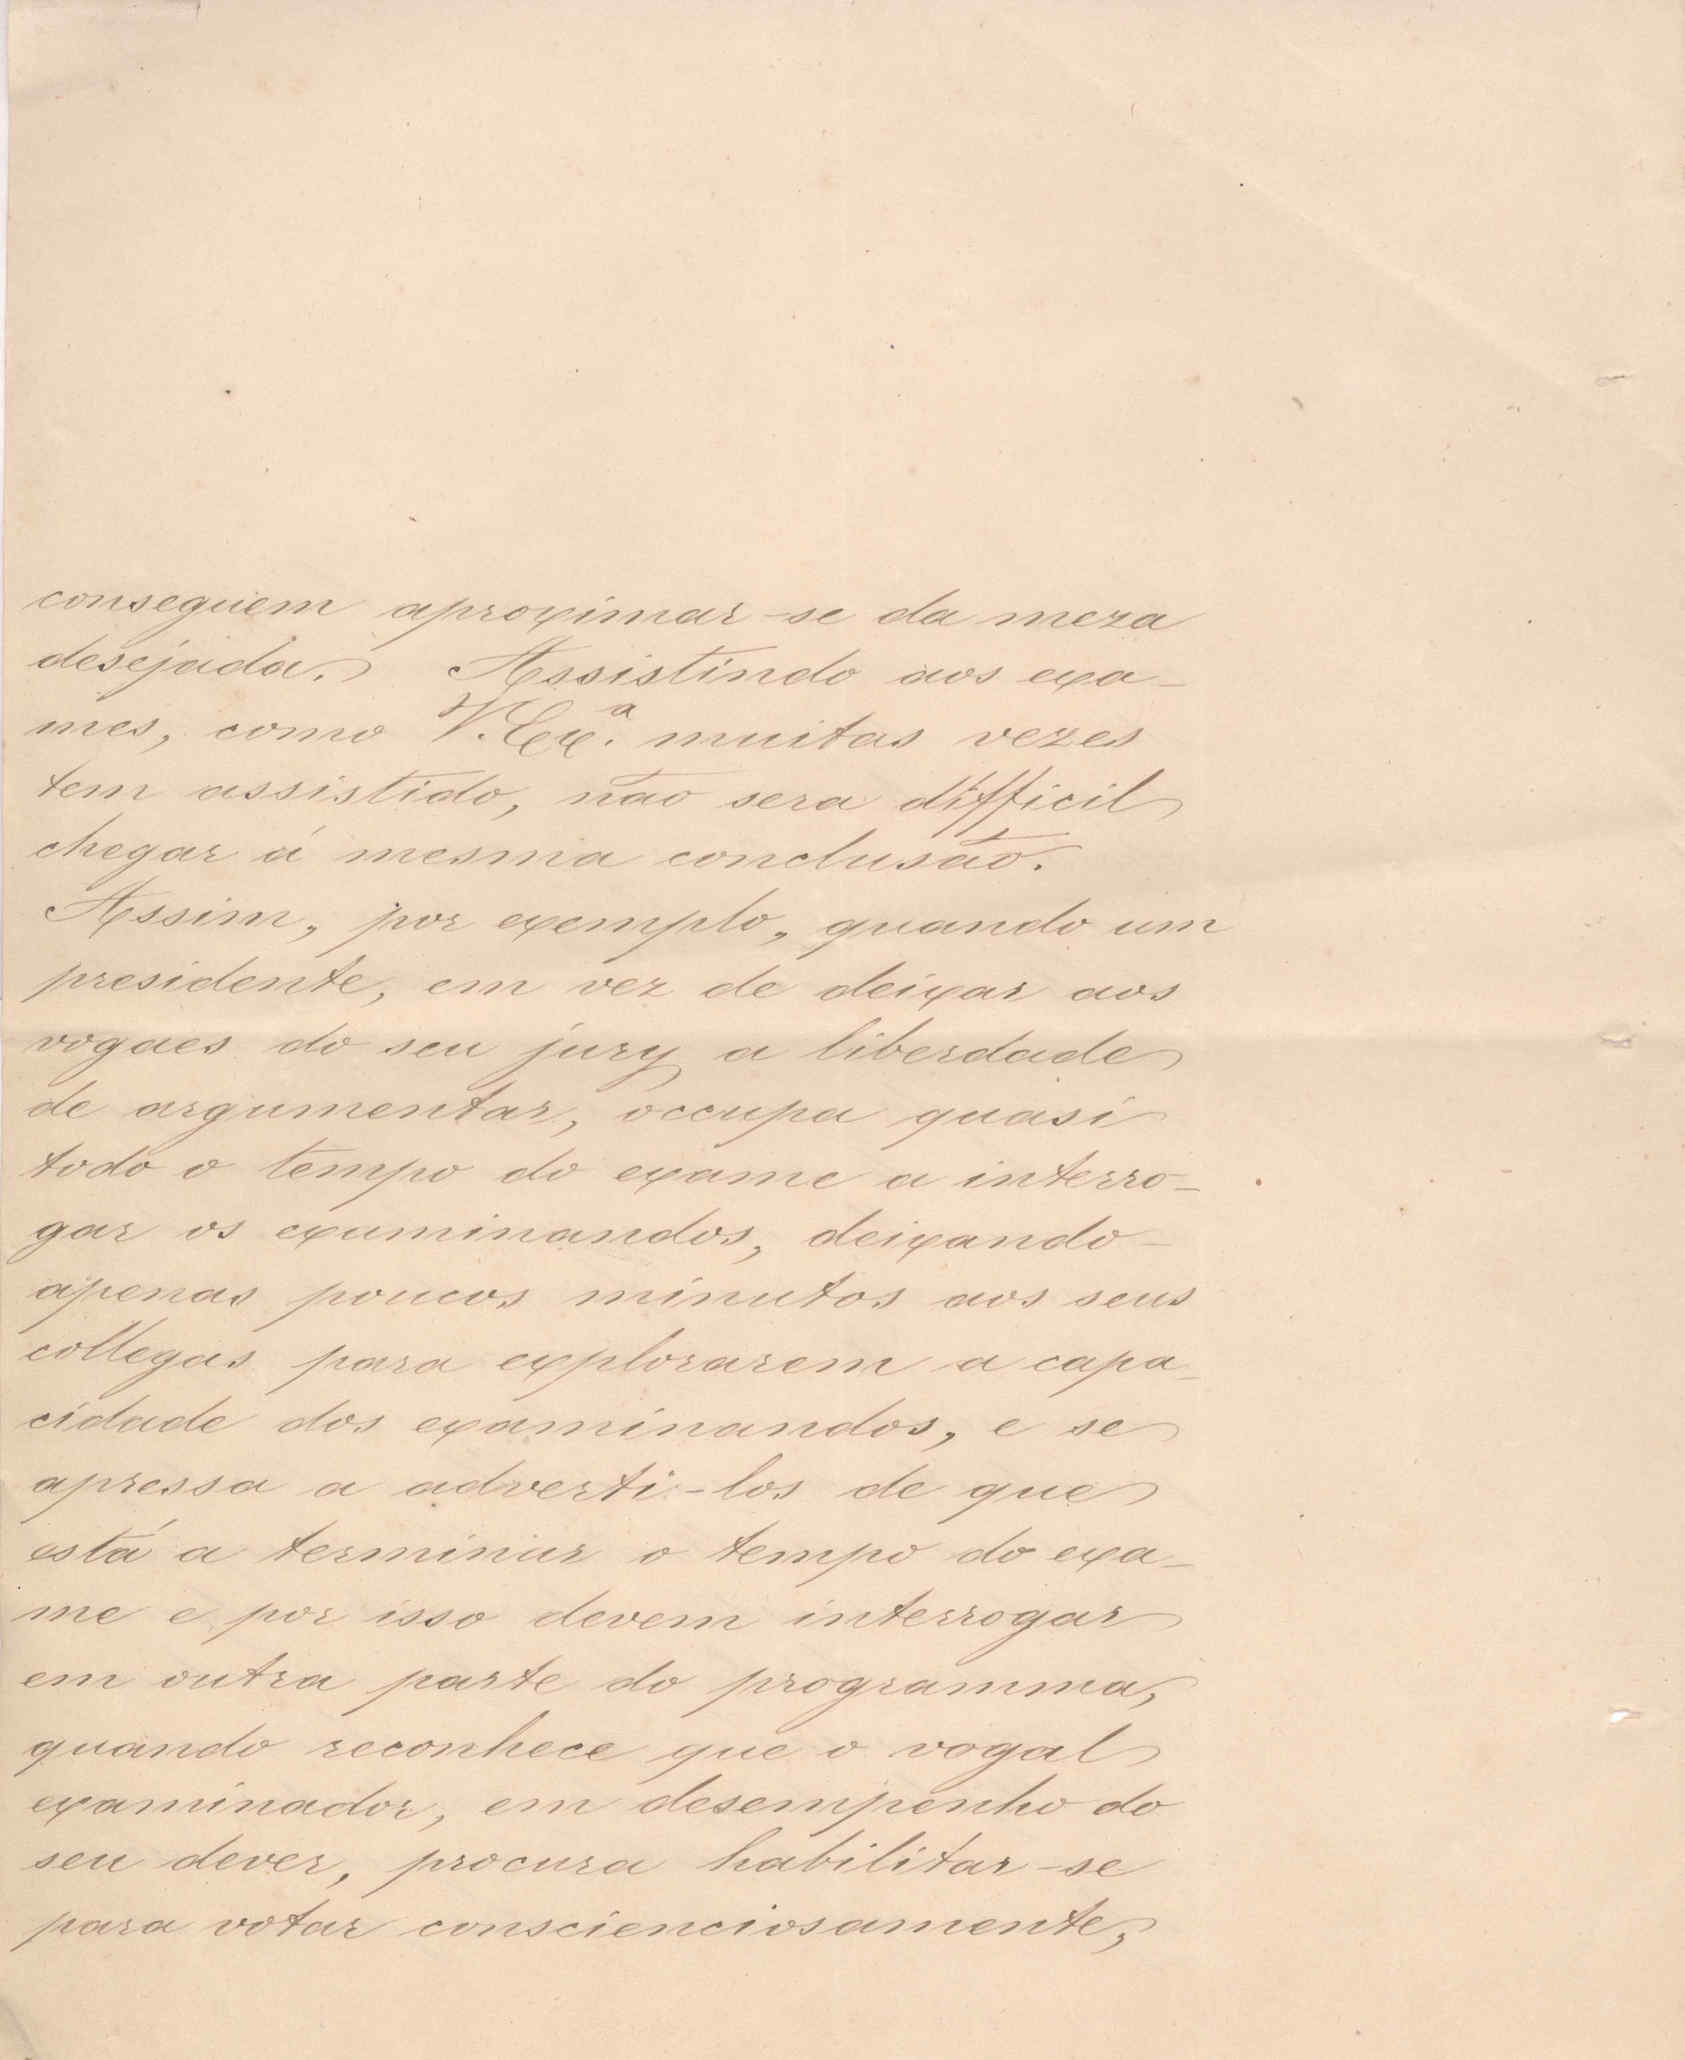 conseguem aproximar-se da meza
desejada. Assistindo aos exa-
mes, como V. Ex.ª muitas vezes
tem assistido, não sera difficil
chegar á mesma conclusão.
Assim, por exemplo, quando um
presidente, em vez de deixar aos
vogaes do seu jury a liberdade
de argumentar, occupa quasi
todo o tempo do exame a interro-
gar os examinandos, deixando
apenas poucos minutos aos seus
collegas para explorarem a capa-
cidade dos examinandos, e se
apressa a adverti-los de que
está a terminar o tempo do exa-
me e por isso devem interrogar
em outra parte do programma,
quando reconhece que o vogal
examinador, em desempenho do
seu dever, procura habilitar-se
para votar conscienciosamente,